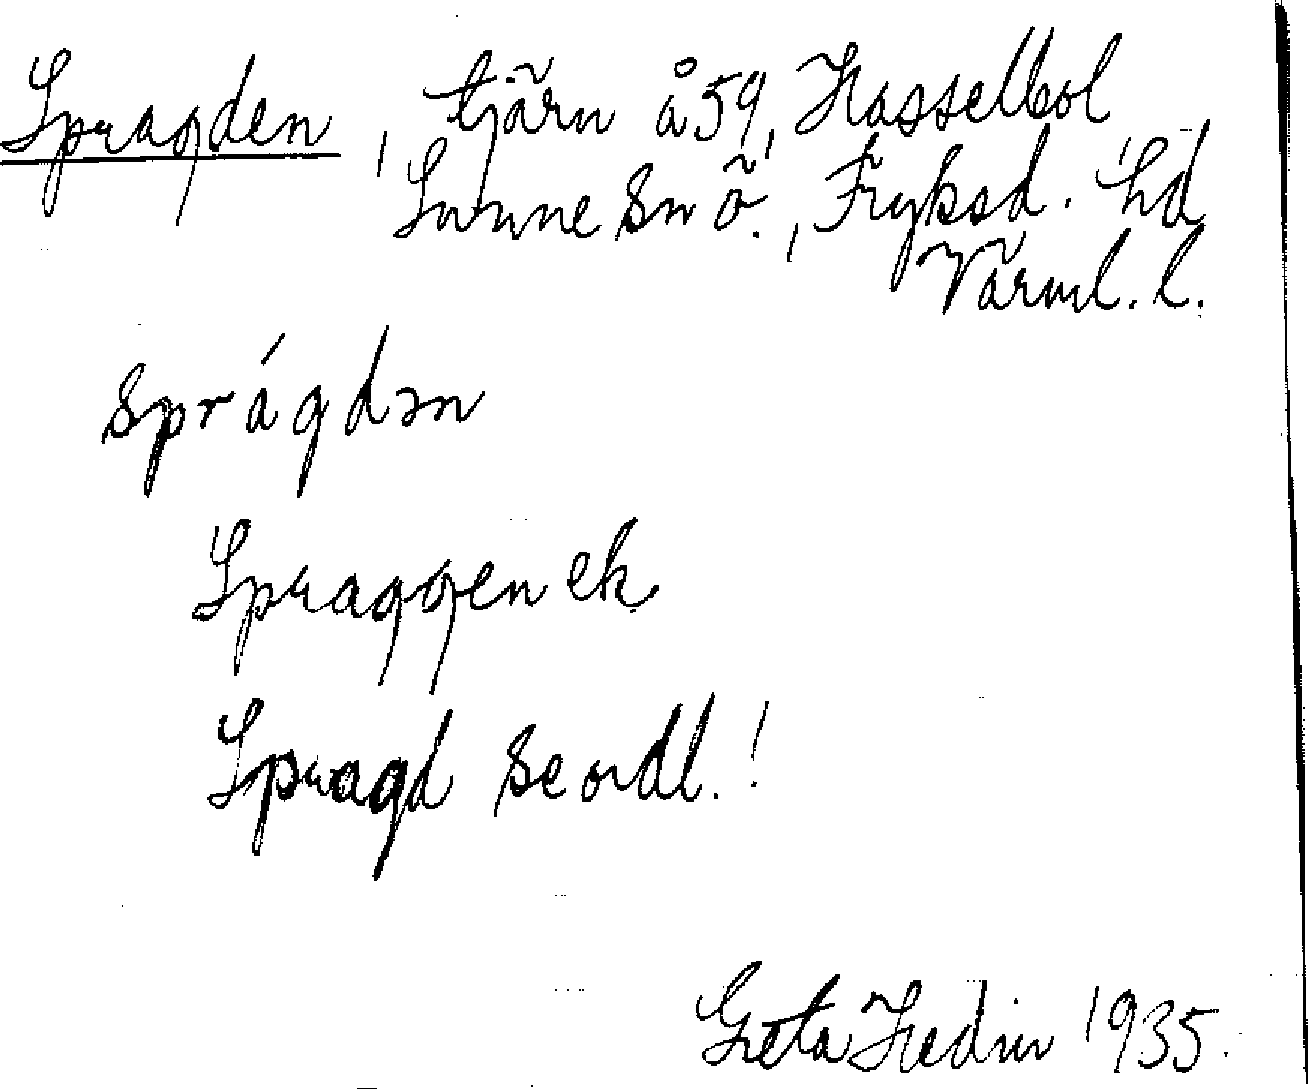 Spragden, tjärn å 59, Hasselbol
Sunne sn ö., Fryksd. hd
Värml. l.
sprágdən
Spraggen ek
Spragd se ordl.!
Greta Hedin 1935.